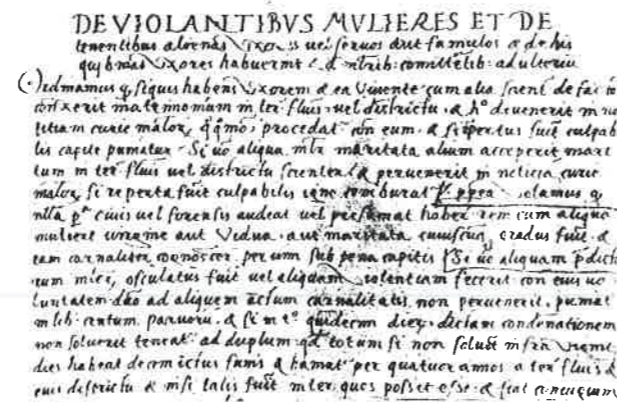 DE VIOLANTIBVS MVLIERES ET DE
tenentibus alienas Vxores uel seruos aut famulos & de his
qui binas Vxores habuerint & d
Ordinamus q, si quis habens Vxorem & ea Viuente cum alia scient de facto
conxerit matrimonium in ter. flui uel districtu. & h° deuenerit in no
titiam curie malor, q° mo procedat con eum. & si repertus fuit culpab
lis capite puniatur. Si uo aliqua mlr maritata alium acceperit mari
tum in ter. flui uel districtu scienter & peruenerit in noticia curie
malor, si reperta fuit culpabilis igne comburat
nlla p. ciuis uel forensis audeat uel presumat haber rem cum aliqua
muliere uirgine aut Vidua aut maritata cuiuscuq, gradus fuit. &
eam carnaliter cognoscer. per uim sub pena capitis Si uo aliquam pdict
rum osculatus fuit uel aliquam uiolentiam fecerit con eius uo
luntatem dno ad aliquem actum carnalitatis non peruenerit. puniat
in lib. centum paruoru. & si in t° quidecim diey dictam condenationem
non soluerit teneat ad duplum. qd totum si non soluit infra
dies habeat decem ictus funis & bamat per quatuor annos a ter. flui &
eius districtu & nisi talis fuit inter quos possit esse. & fiat